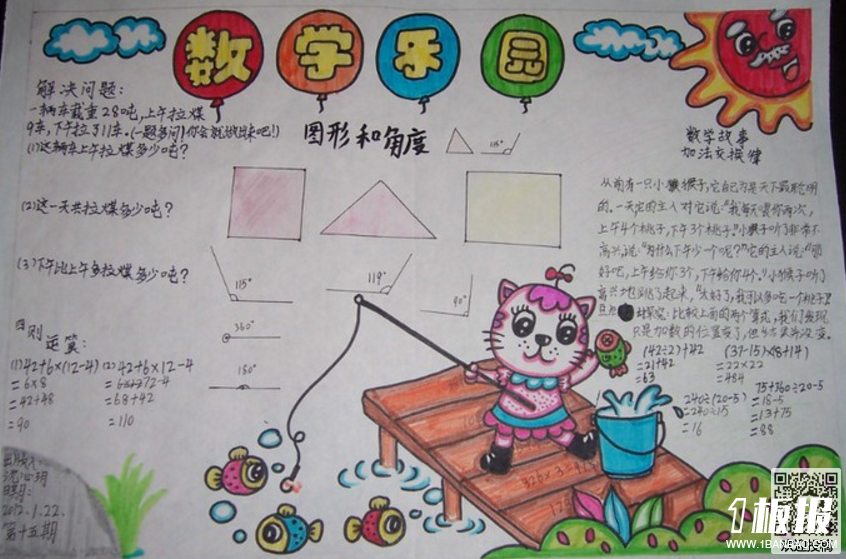 数学乐园
解决问题:
一辆车载重28吨,上午拉煤
9车,下午拉了11车。(一题多问!你会就做出来吧!)
(1)这辆车上午拉煤多少吨?
(2)这一天共拉煤多少吨?
(3)下午比上午多拉煤多少吨?
图形和角度
115°
115°
119°
90°
360°
180°
四则运算:
(1)42+6×(12-4)
=6×8
=42+48
=90
(2)42+6×12-4
72-4
=68+42
=110
数学故事
加法交换律
从前有一只小猴子,它自己为是天下最聪明
的。一天它的主人对它说:“我每天喂你两次,
上午4个桃子,下午3个桃子”小猴子听了非常不
高兴说:“为什么下午少一个呢?”它的主人说:“那
好吧,上午给你3个,下午给你4个。”小猴子听了
高兴地跳了起来,“太好了,我可以多吃一个桃子!”
比较上面的两个算式,我们发现
只是加数的位置变了,但
(42÷2)+42
=21+42
=63
(37-15)×(8+14)
=22×22
=484
240÷(20-5)
=240÷15
=16
75+360÷20-5
=18-5
=13+75
=88
2012.1.22.
第十五期
1板报
WWW.1BANBAO.COM